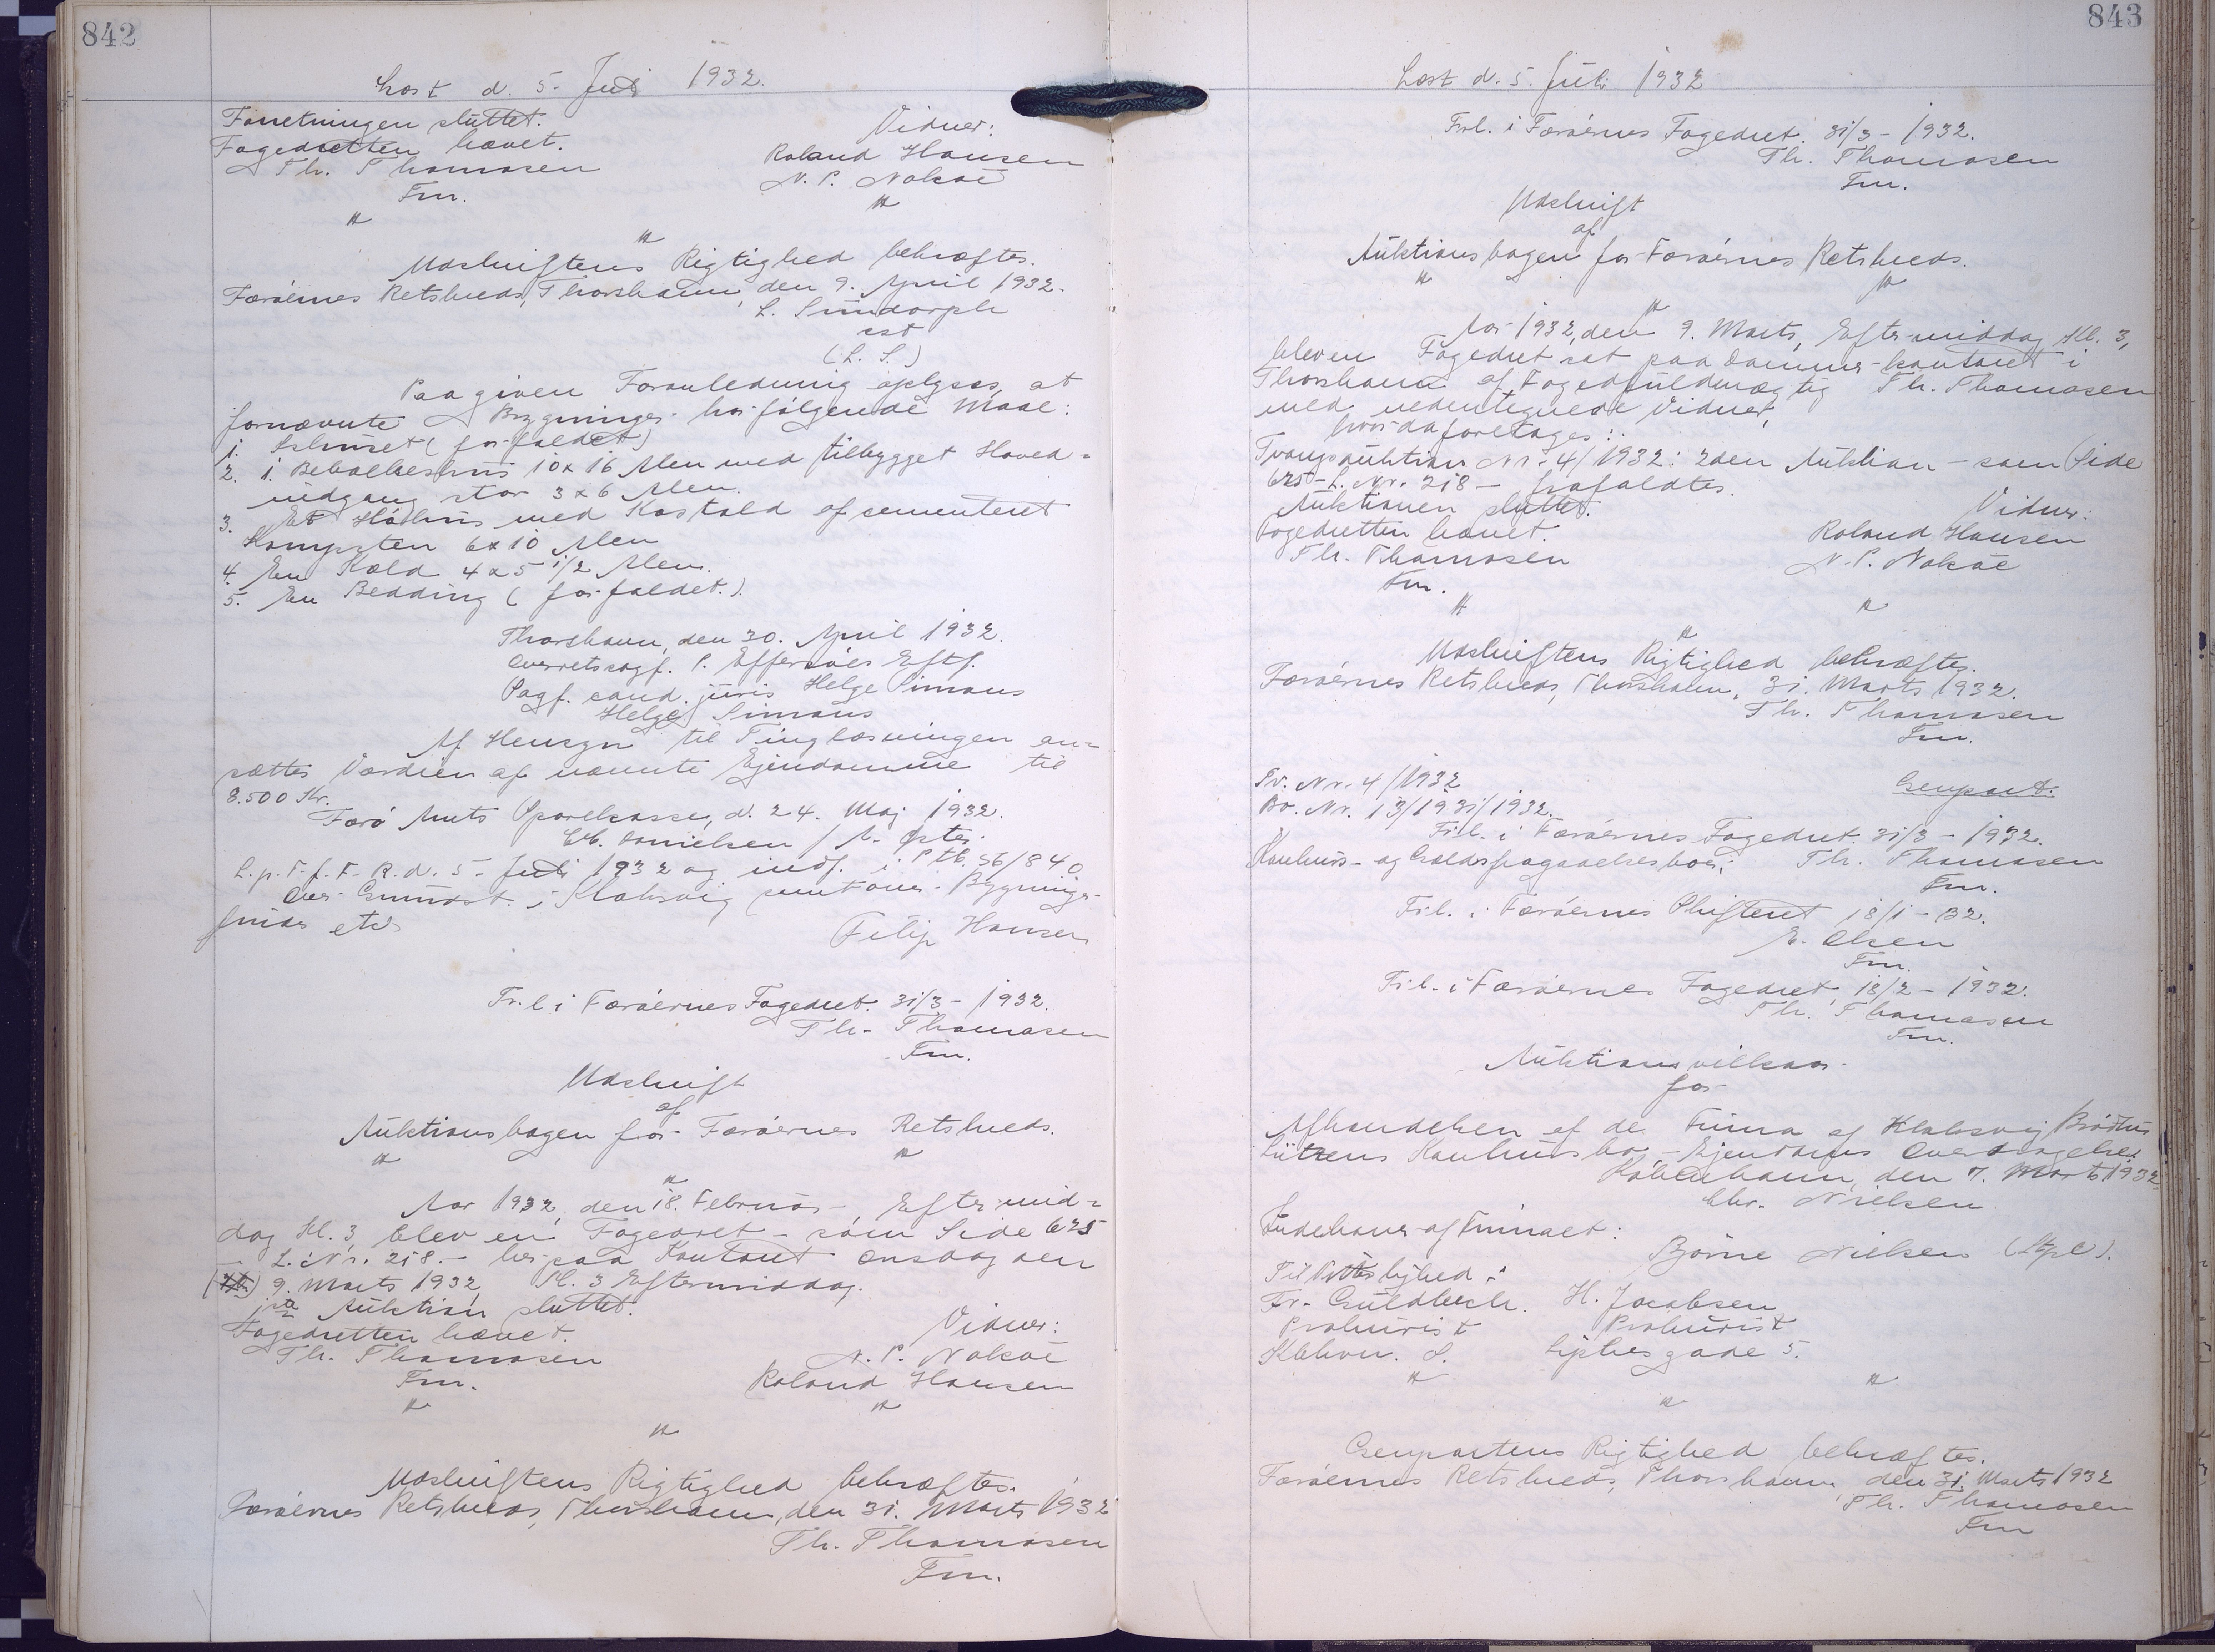 842
Læst d. 5. Juli 1932.
Forretningen sluttet.
Vidner:
Fogedretten hævet.
Roland Hansen
Th. Thomasen
N. P. Nolsøe
Fm.
"
"
"
Udskriftens Rigtighed bekræftes.
Færøernes Retskreds, Thorshavn, den 9. April 1932.
L. Sundorph
cst
(L. S.)
Paa given Foranledning oplyses, at
fornævnte Bygninger har følgende Maal:
1. Ishuset (forfaldet)
2. 1. Beboelseshus 10 x 16 Alen med tilbygget Hoved-
indgang stor 3 x 6 Alen.
3. Et med Kostald af cementeret
Kampsten 6 x 10 Alen
4. En Kæld 4 x 5 1/2 Alen.
5. En Bedding (forfaldet.)
Thorshavn, den 30. April 1932.
Overretssagf. P. Effersøes Eftf.
Sagf. cand. juris Helge Simons
Helge Simons
Af Hensyn til Tinglæsningen an-
sættes Værdien af nævnte Ejendomme til
8.500 Kr.
Færø Amts Sparekasse, d. 24. Maj 1932.
Chr. Danielsen / A. Øster.
L. p. T. f. F. R. d. 5. Juli 1932 og indf. i Ptb. S6/840
Over Grundst. i Klaksvig samt over Bygnings-
Filip Hansen
Fr. l. i Færøernes Fogedret. 31/3 - 1932.
Th. Thomasen
Fm.
Udskrift
af
Auktionsbogen for Færøernes Retskreds.
"
"
"
Aar 1932, den 18. Februar, Eftermid-
dag Kl. 3, blev en Fogedret - som Side 625
L. Nr. 218. - her paa Kontoret Onsdag den
9. Marts 1932, Kl. 3 Eftermiddag.
1ste Auktion sluttet.
Vidner:
Fogedretten hævet.
N. P. Nolsøe
Th. Thomasen
Roland Hansen
Fm.
"
"
"
Udskriftens Rigtighed bekræftes.
Færøernes Retskreds, Thorshavn, den 31. Marts 1932
Th. Thomasen
Fm.
843
Læst d. 5. Juli 1932
Frl. i Færøernes Fogedret. 31/3 - 1932.
Th. Thomasen
Fm.
Udskrift
af
Auktionsbogen for Færøernes Retskreds.
"
"
"
Aar 1932, den 9. Marts, Eftermiddag Kl. 3,
blev en Fogedret sat paa Dommerkontoret i
Thorshavn af Fogedfuldmægtig Th. Thomasen
med undertegnede Vidner,
hvorda foretages:
Tvangsauktion Nr. 4/1932: 2den Auktion - som Side
625 - L. Nr. 218 - frafaldtes.
Auktionen sluttet.
Vidner:
Fogedretten hævet.
Roland Hansen
Th. Thomasen
N. P. Nolsøe
Fm.
"
"
"
Udskriftens Rigtighed bekræftes.
Færøernes Retskreds, Thorshavn, 31. Marts 1932.
Th. Thomasen
Fm.
Tv. Nr. 4/1932
Genpart.
Bo. Nr. 13/1931/1932.
Fr. l. i Færøernes Fogedret. 31/3 - 1932.
Konkurs- og Gældsfragaaelsesboer: Th. Thomasen
Fm.
Fr. l. i Færøernes Skifteret 18/1 - 32.
E. Olsen
Fm.
Fr. l. i Færøernes Fogedret, 18/2 - 1932.
Th. Thomasen
Fm.
Auktionsvilkaar
for
Afhændelsen af de Firma af Klaksvig Brødrene
Lützens Konkursbo Ejendoms Overdragelse
København, den 7. Marts 1932.
Chr. Nielsen
Indehaver af Firmaet:
Bjørne Nielsen (Stpl.).
Til Vitterlighed:
Fr. Guldbech. H. Jacobsen
Prokurist Prokurist
Kbhvn. S. gade 5.
"
"
"
Genpartens Rigtighed bekræftes.
Færøernes Retskreds, Thorshavn, den 31. Marts 1932
Th. Thomasen
Fm